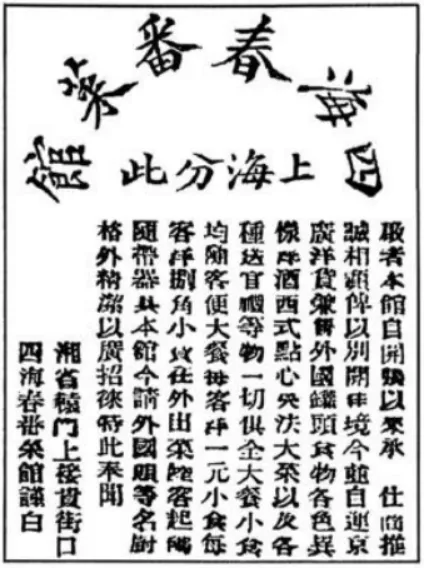 四海春番菜館
上海分此
敬者本館自開張以來承 仕商推
誠相顧俾以別開生境今並自運京
廣洋貨兼售外國罐頭食物各色異
樣洋酒西式點心英法大菜以及各
種送官禮等物一切俱全大餐小食
均隨客便大餐每客洋一元小食每
客洋捌角小食在外出菜陸客起碼
隨帶器具本館今請外國頭等名廚
格外精潔以廣招徠特此奉聞
湘省轅門上接貴街口
四海春番菜館謹白